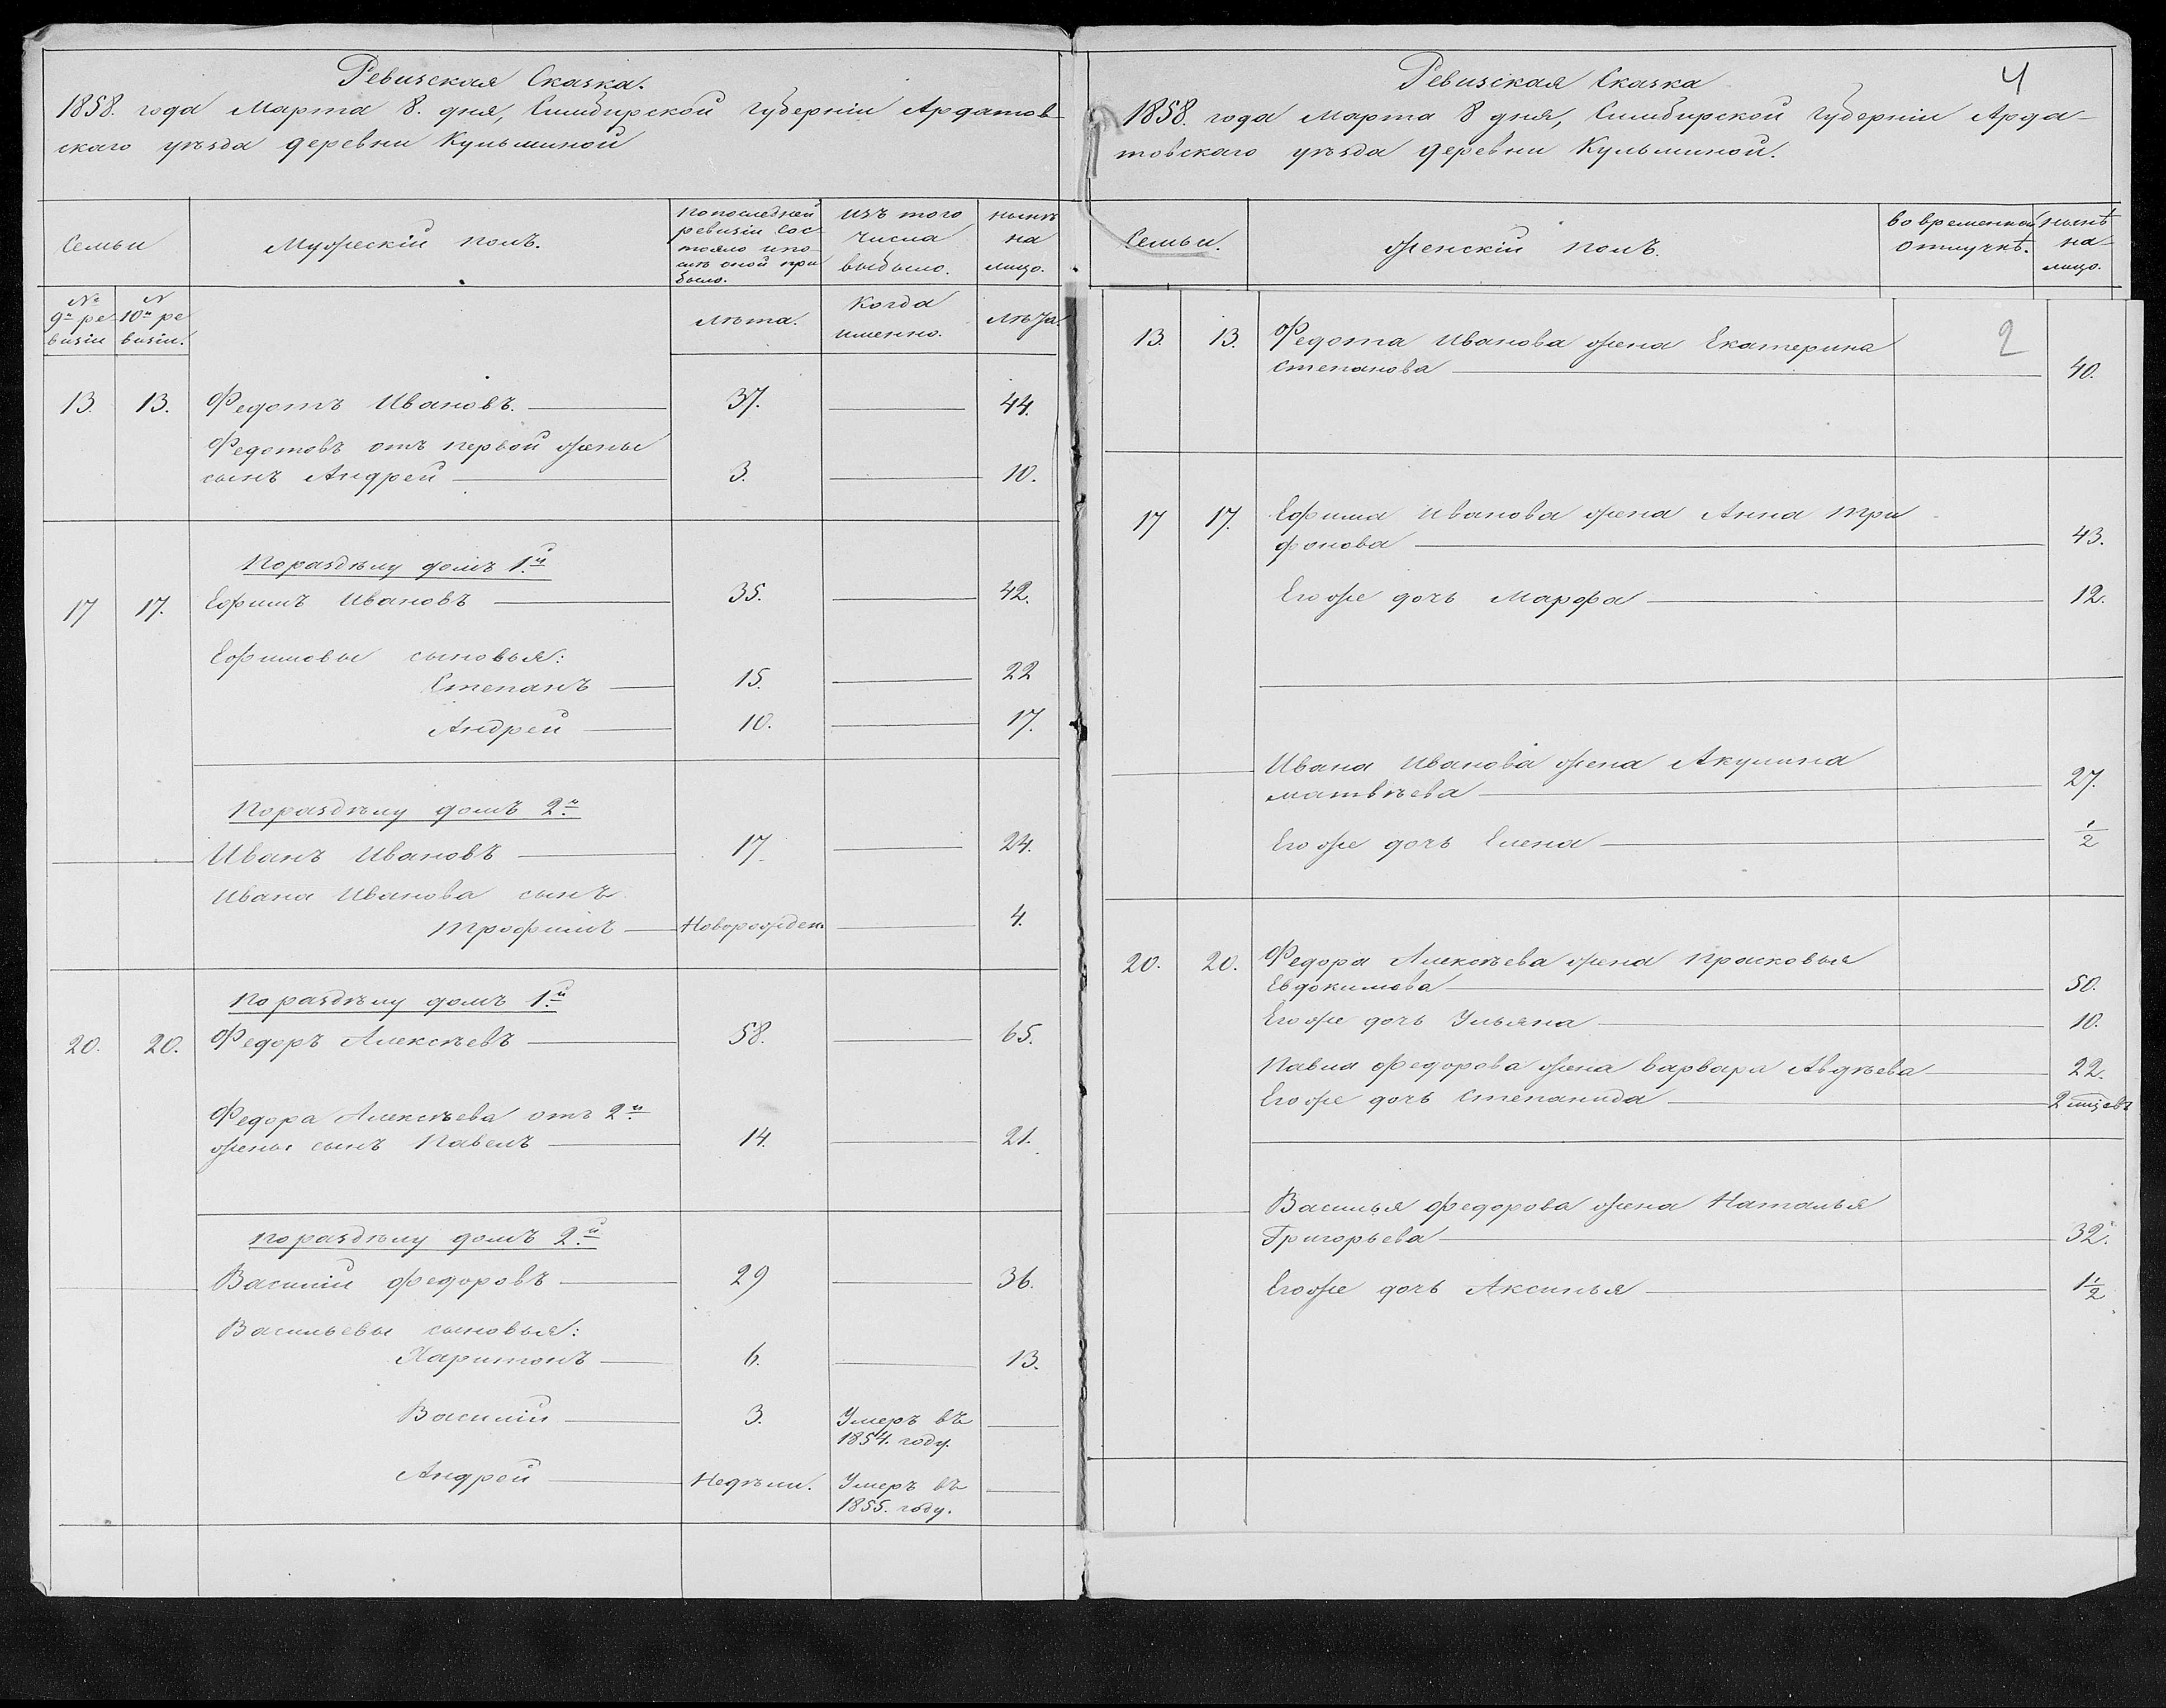 Ревизская Сказка.
1858. года Марта 8. дня, Симбирской Губерніи Ардатов-
скаго уѣзда деревни Кульминой
Семьи
Мужескій полъ.
По последней
ревизіи сос-
тояло и по-
слѣ оной при
было.
изъ того
числа
выбыло.
нынѣ
на
лицо.
№
9й ре
визіи
№
10й ре
визіи.
лѣта.
Когда
именно.
лѣта.
13. 13. Федотъ Ивановъ. 37. 44.
Федотовъ отъ первой жены
сынъ Андрей 3. 10.
По раздѣлу домъ 1й
17 17. Ефимъ Ивановъ 35. 42.
Ефимовы сыновья:
Степанъ 15. 22
Андрей 10. 17.
По раздѣлу домъ 2й
Иванъ Ивановъ 17 24.
Ивана Иванова сынъ
Трофимъ Новорожден. 4.
По раздѣлу домъ 1й
20. 20. Федоръ Алексѣевъ 58. 65.
Федора Алексѣева отъ 2й
жены сынъ Павелъ 14. 21.
По раздѣлу домъ 2й
Василий Федоровъ 29 36.
Васильевы сыновья:
Харитонъ 6. 13.
Василий 3. Умеръ въ
1854. году.
Андрей Недѣли. Умеръ въ
1855. году.
Ревизская Сказка
4
1858. года Марта 8 дня, Симбирской Губерніи Арда-
товскаго уѣзда деревни Кульминой.
Семьи.
женскій полъ.
во временной
отлучкѣ.
нынѣ
на-
лицо.
2
13. 13. Федота Иванова жена Екатерина
Степанова 40.
17 17. Ефима Иванова жена Анна Три
фонова 43.
Его же дочь Марфа 12.
Ивана Иванова жена Акулина
Матвѣева 27.
Его же дочь Елена 1/2
20. 20. Федора Алексѣева жена Прасковья
Евдокимова 50.
Его же дочь Ульяна 10.
Павла Федорова жена Варвара Авдѣева 22.
Его же дочь Степанида 2 мѣсяц.
Василья Федорова жена Наталья
Григорьева 32.
Его же дочь Аксинья 1 1/2